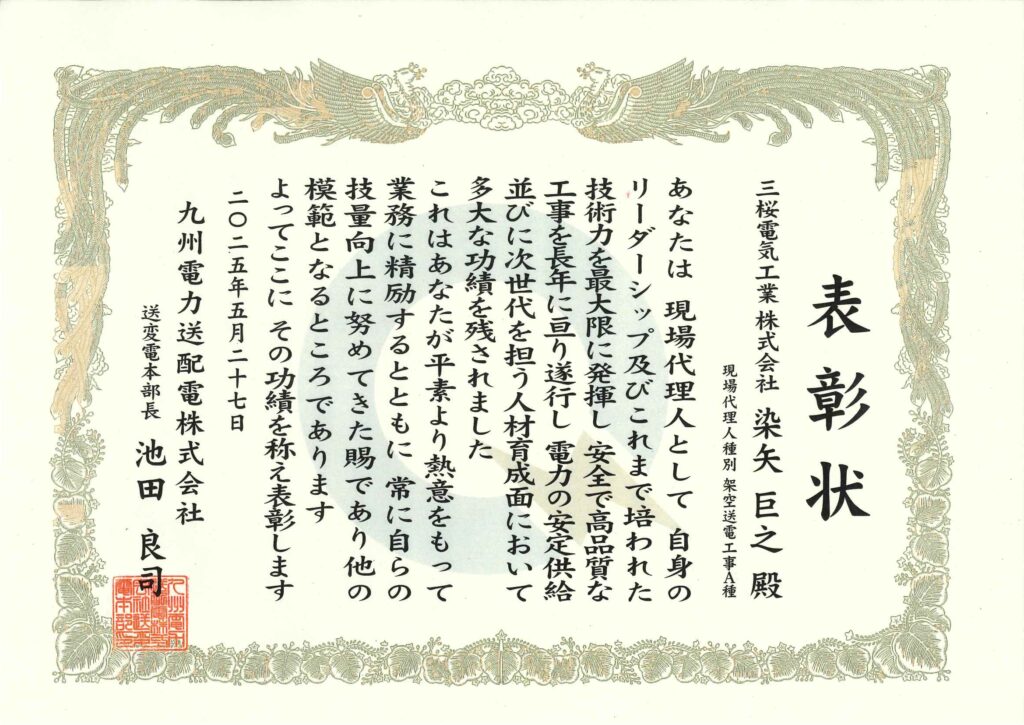 表彰状
三桜電気工業 株式会社 染矢 巨之 殿
現場代理人種別 架空送電工事A種
あなたは 現場代理人として 自身の
リーダーシップ及びこれまで培われた
技術力を最大限に発揮し 安全で高品質な
工事を長年に亘り遂行し 電力の安定供給
並びに次世代を担う人材育成面において
多大な功績を残されました
これはあなたが平素より熱意をもって
業務に精励するとともに 常に自らの
技量向上に努めてきた賜であり他の
模範となるところであります
よってここに その功績を称え表彰します
二〇二五年五月二十七日
九州電力送配電株式会社
送変電本部長 池田 良司